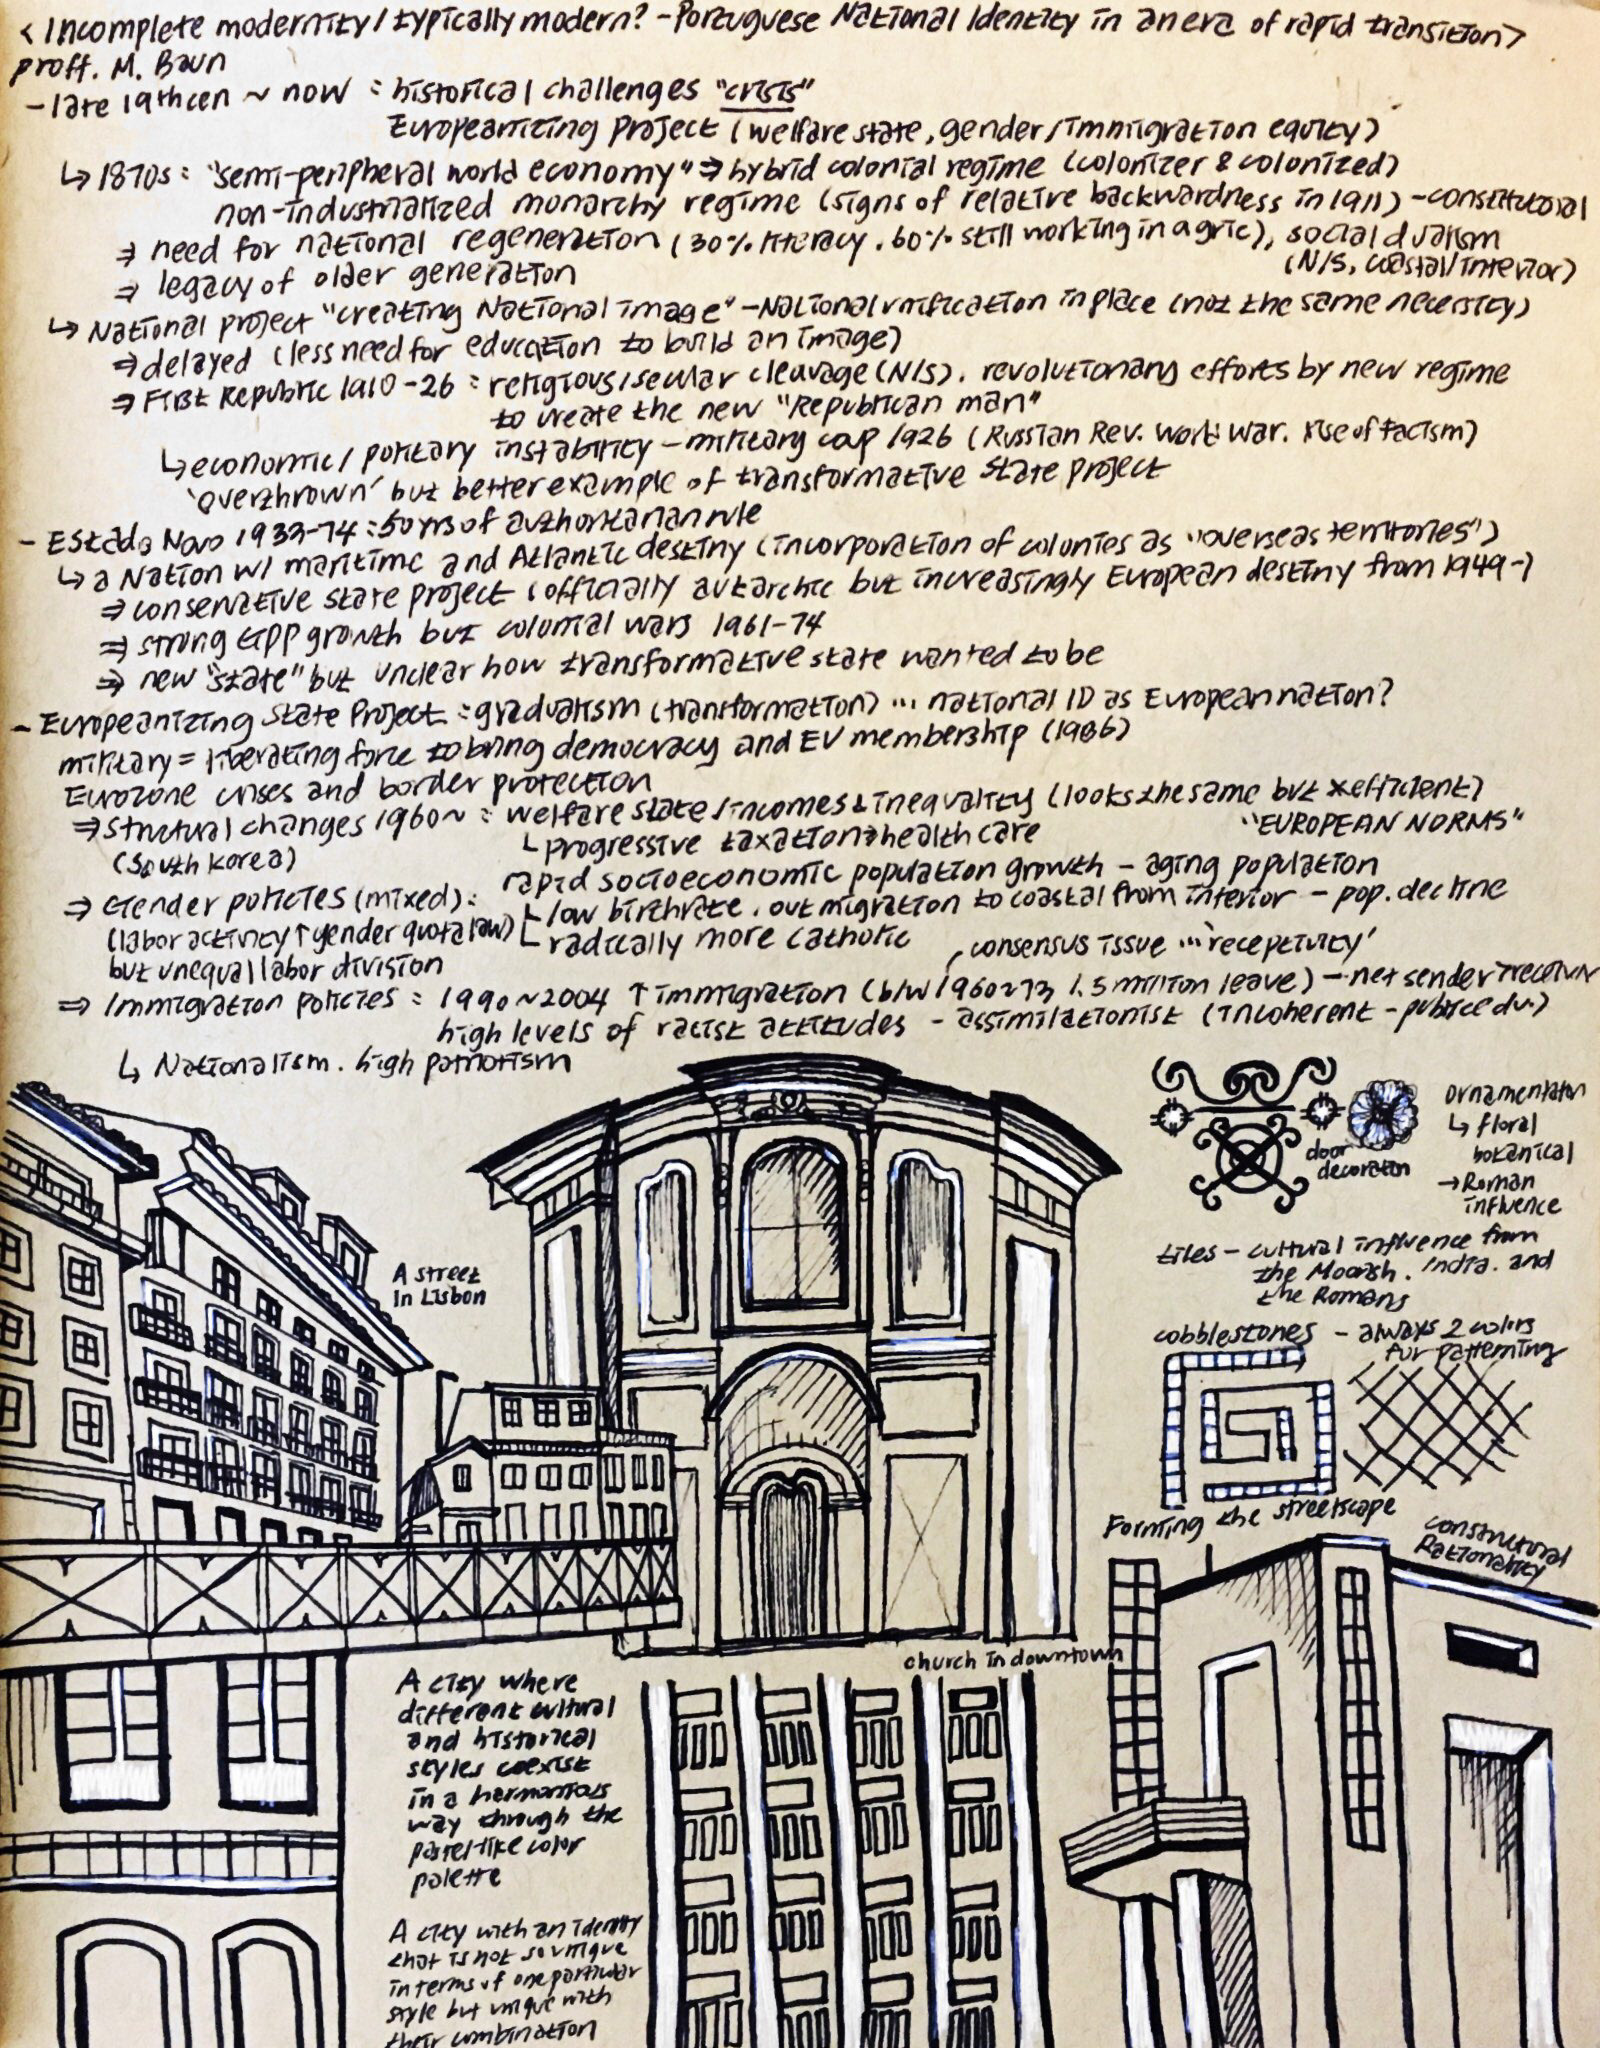 <Incomplete modernity/typically modern? -Portuguese National Identity in an era of rapid transition>
proff. M. Baun
- late 19thcen ~ now : historical challenges "crisis"
Europeanizing project (welfare state, gender/immigration equity)
↳ 1870s : "semi-peripheral world economy" ⇒ hybrid colonial regime (colonizer & colonized)
non-industrialized monarchy regime (signs of relative backwardness in 1911) - constitutoial
⇒ need for national regeneration (30% literacy. 60% still working in agric), social dualism
(N/S, coastal/interior)
⇒ legacy of older generation
↳ National project "creating National image" - National unification in place (not the same necessity)
⇒ delayed (less need for education to build an image)
⇒ First Republic 1910-26 : religious/secular cleavage (N/S). revolutionary efforts by new regime
to create the new "Republican man"
↳ economic/politary instability - military coup 1926 (Russian Rev. World War. rise of facism)
'overthrown' but better example of transformative state project
- Estado Novo 1933-74 : 50yrs of authoritarian rule
↳ a Nation w/ maritime and Atlantic destiny (incorporation of colonies as "overseas territories")
⇒ conservative state project (officially autarchic but increasingly European destiny from 1949-)
⇒ strong GDP growth but colonial wars 1961-74
⇒ new "state" but unclear how transformative state wanted to be
- Europeanizing State Project : gradualism (transformation) ... national ID as European nation?
military = liberating force to bring democracy and EU membership (1986)
Eurozone crises and border protection
⇒ structual changes 1960~ : welfare state/incomes & inequality (looks the same but x efficient)
"EUROPEAN NORMS"
(South Korea)
↳ progressive taxation ⇒ healthcare
rapid socioeconomic population growth - aging population
⇒ Gender policies (mixed) :
↳ low birthrate. out migration to coastal from interior - pop. decline
(labor activity ↑ gender quota law)
↳ radically more catholic
but unequal labor division
consensus issue ... 'receptivity'
⇒ Immigration policies : 1990~2004 ↑ immigration (b/w 1960~73 1.5 million leave) - net sender
high levels of racist attitudes - assimilationist (incoherent - public edu.)
↳ Nationalism. high patriotism
ornamentaton
↳ floral
botanical
→ Roman
influence
door
decoraton
tiles - cultural influence from
the Moorish. India. and
the Romans
A street
in Lisbon
cobblestones - always 2 colors
for patterning
Forming the streetscape
constructural
Rationality
church in downtown
A city where
different cultural
and historical
styles coexist
in a harmonious
way through the
pastel-like color
palette
A city with an identity
that is not so unique
in terms of one particular
style but unique with
their combination